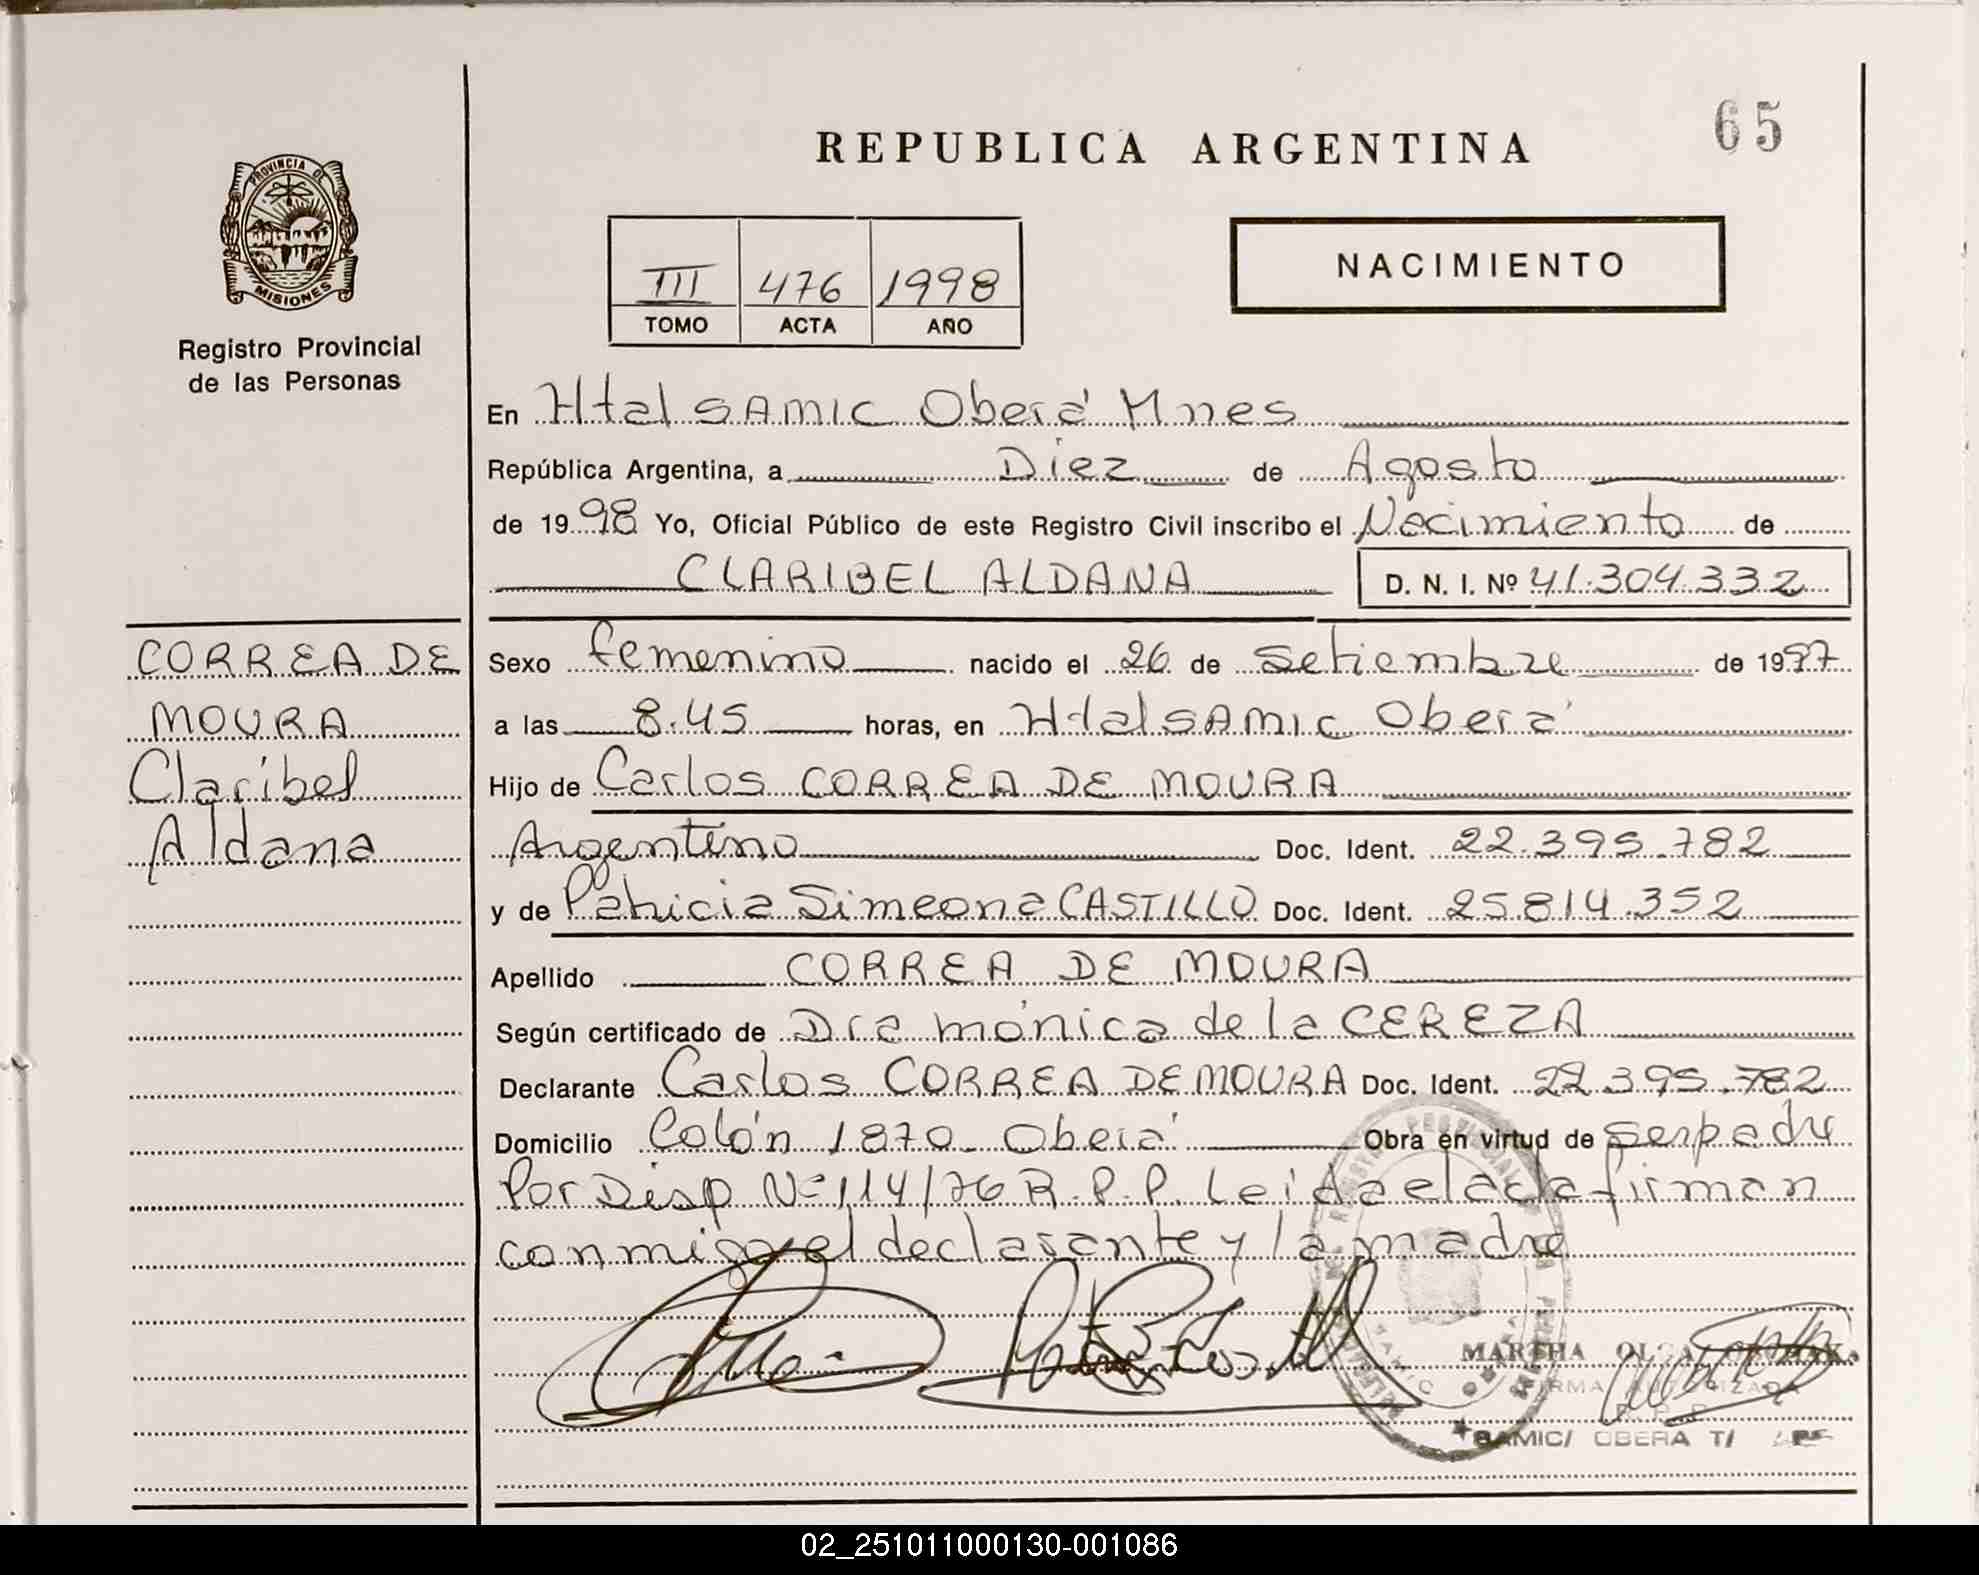 65
REPUBLICA ARGENTINA
PROVINCIA DE
MISIONES
Registro Provincial
de las Personas
III 476 1998
TOMO ACTA AÑO
NACIMIENTO
En Htal SAMIC Oberá Mnes
República Argentina, a Diez de Agosto
de 1998 Yo, Oficial Público de este Registro Civil inscribo el Nacimiento de
CLARIBEL ALDANA D. N. I. Nº 41.304.332
CORREA DE
MOURA
Claribel
Aldana
Sexo femenino nacido el 26 de Setiembre de 1997
a las 8.45 horas, en Htal SAMIC Oberá
Hijo de Carlos CORREA DE MOURA
Argentino Doc. Ident. 22.395.782
y de Patricia Simeona CASTILLO Doc. Ident. 25.814.352
Apellido CORREA DE MOURA
Según certificado de Dra mónica de la CEREZA
Declarante Carlos CORREA DE MOURA Doc. Ident. 22.395.782
Domicilio Colón 1870 Oberá Obra en virtud de ser padre
Por Disp Nº 114/76 R.P.P. Leida el acta firman
conmigo el declarante y la madre
MARTHA OLGA
FIRMA AUTORIZADA
R.P.P.
SAMIC/ OBERA
02_251011000130-001086